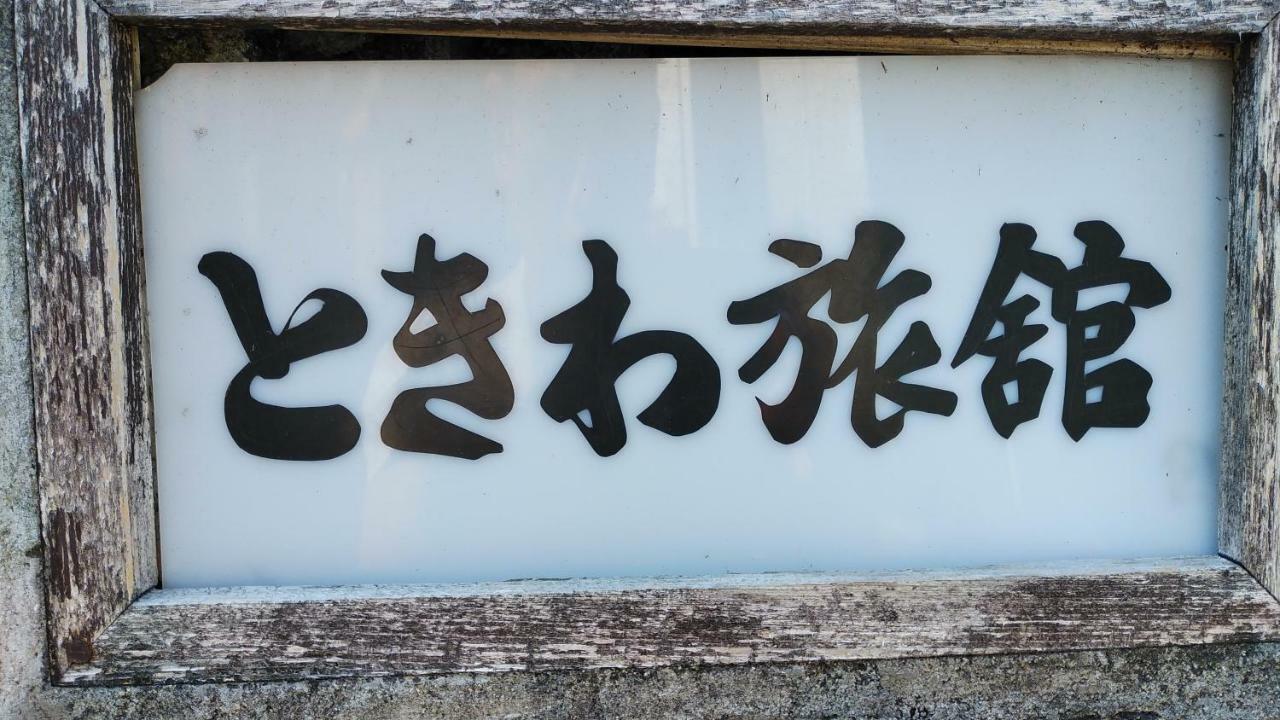 ときわ旅館